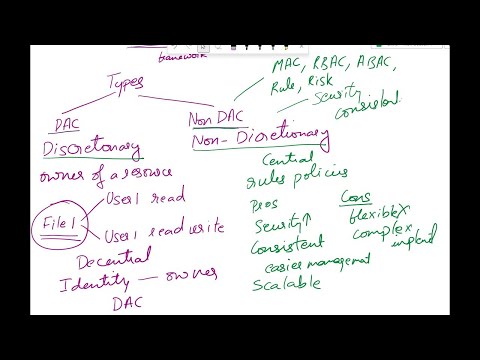 framework
Types
MAC, RBAC, ABAC,
Rule, Risk
Security
consistent
DAC
Discretionary
owner of a resource
File 1
User1 read
User1 read write
Decentral
Identity — owner
DAC
Non DAC
Non-Dicretionary
Central
rules policies
Pros
Security↑
Consistent
easier managemat
Scalable
Cons
flexibleX
complex